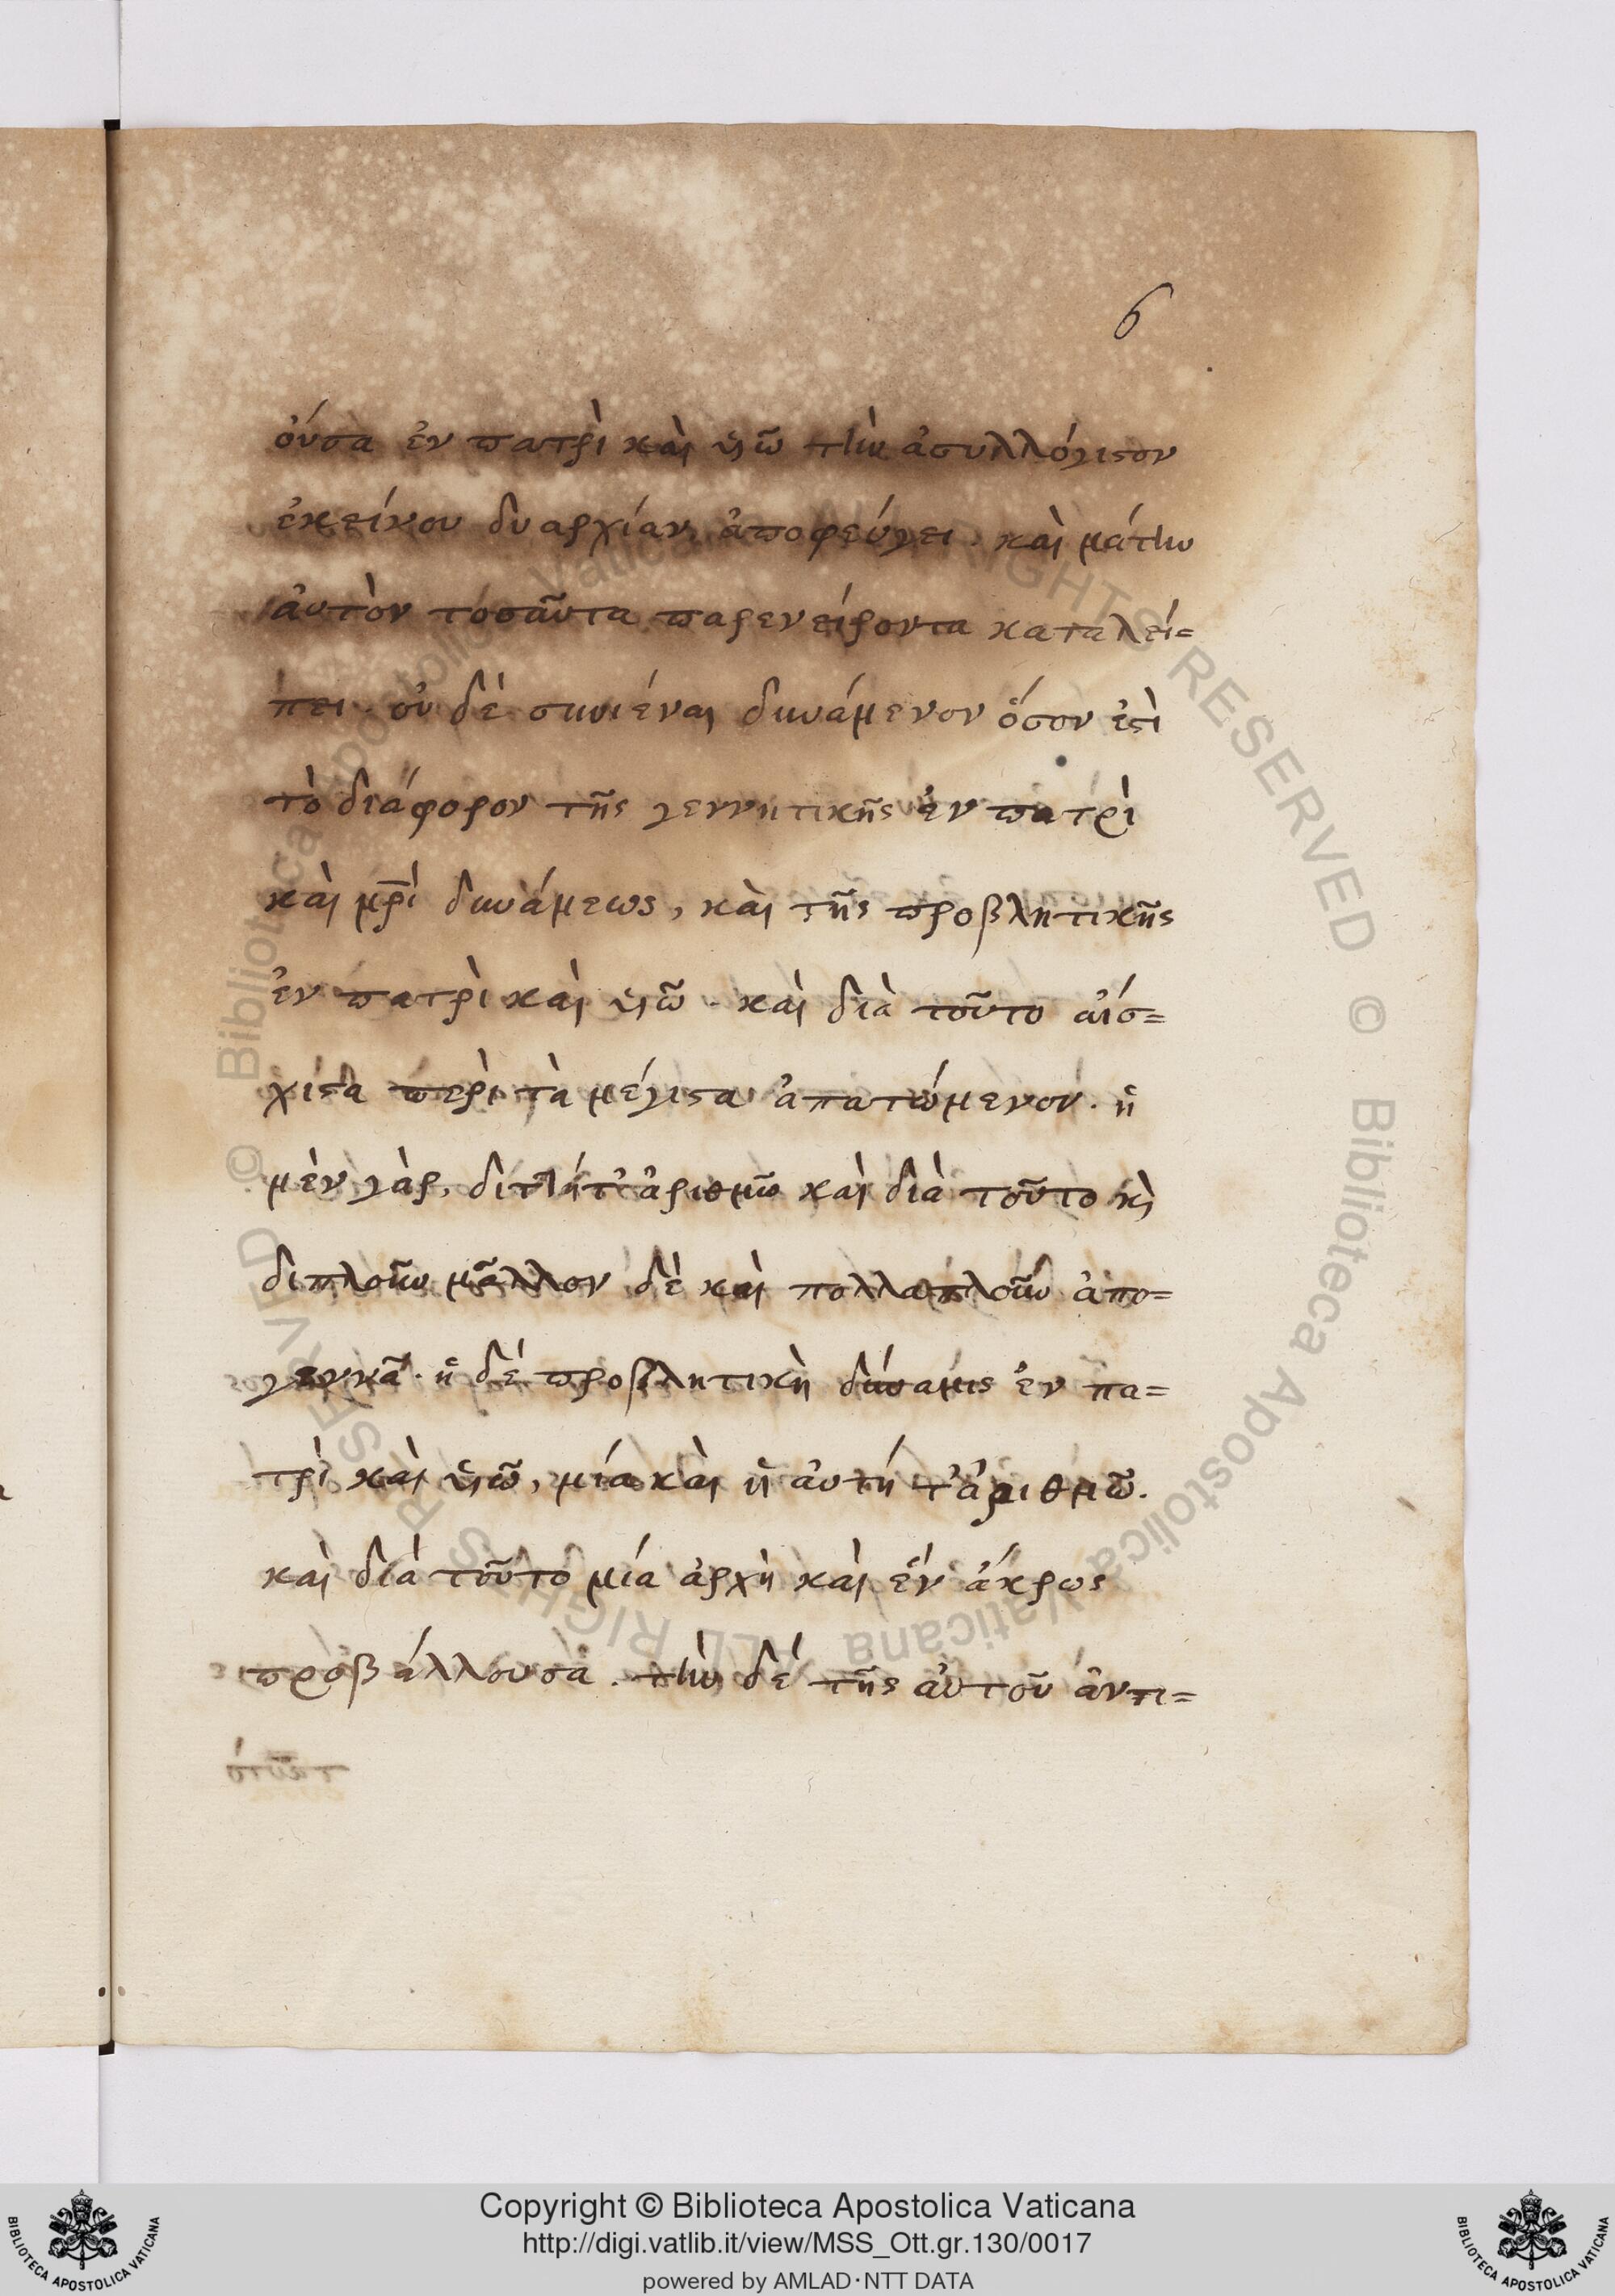 6
οὖσα ἐν πατρὶ καὶ υἱῶ τὴν ἀσυλλόγιστον
ἐκείνου δυαρχίαν ἀποφεύγει. καὶ μάτην
αὐτὸν τοσαῦτα παρενείροντα καταλεί=
πει. οὐ δὲ συνιέναι δυνάμενον ὅσον ἐστὶ
τὸ διάφορον τῆς γεννητικῆς ἐν πατρὶ
καὶ μρὶ δυνάμεως, καὶ τῆς προβλητικῆς
ἐν πατρὶ καὶ υἱῶ. καὶ διὰ τοῦτο αἴσ=
χιστα περὶ τὰ μέγιστα ἀπατώμενον. ἡ
μὲν γὰρ, διττὴ τ' ἀριθμῶ καὶ διὰ τοῦτο κὶ
διπλοῦν μᾶλλον δὲ καὶ πολλαπλοῦν ἀπο=
γεννᾶ. ἡ δὲ προβλητικὴ δύναμις ἐν πα=
τρὶ καὶ υἱῶ, μία καὶ ἡ αὐτὴ τ' ἀριθμῶ.
καὶ διὰ τοῦτο μία ἀρχὴ καὶ ἓν ἄκρως
προβάλλουσα. τὴν δὲ τῆς αὐτοῦ ἀντι=
Copyright © Biblioteca Apostolica Vaticana
http://digi.vatlib.it/view/MSS_Ott.gr.130/0017
powered by AMLAD·NTT DATA
BIBLIOTECA APOSTOLICA VATICANA
BIBLIOTECA APOSTOLICA VATICANA